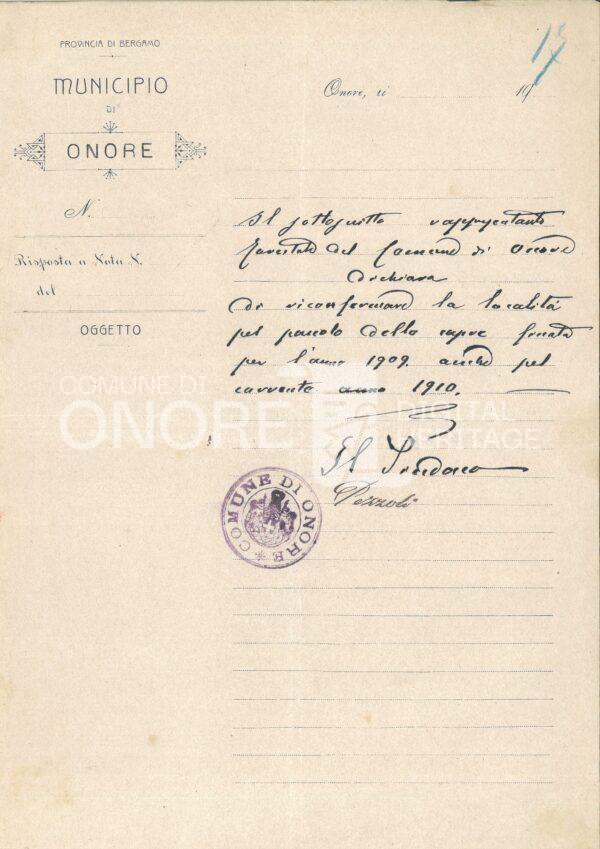 PROVINCIA DI BERGAMO
MUNICIPIO
DI
ONORE
N.
Risposta a Nota N.
del
OGGETTO
17
Onore, li 19
Il sottoscritto rappresentante
Forestale del Comune di Onore
dichiara
di riconfermare la località
pel pascolo delle capre fissata
per l'anno 1909. anche pel
corrente anno 1910.
Il Sindaco
Pezzoli
COMUNE DI ONORE
COMUNE DI
ONORE
DIGITAL
HERITAGE